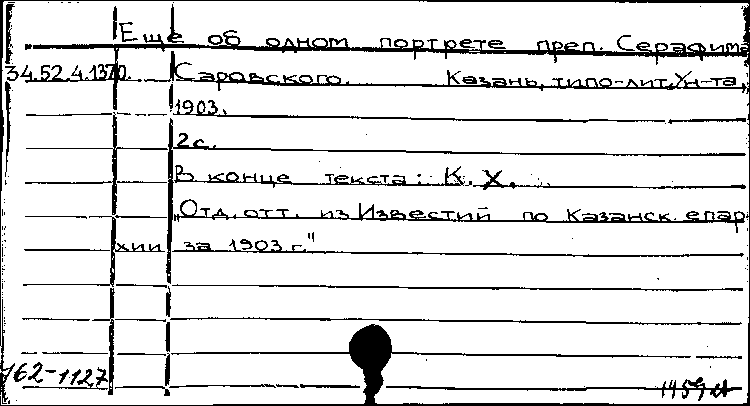 Еще об одном портрете преп. Серафима
34.52.4.1370. Саровского. Казань, типо-лит. Ун-та,
1903.
2с.
В конце текста: К. Х.
„Отд. отт. из Известий по Казанск. епар
хии за 1903 г."
162-1127